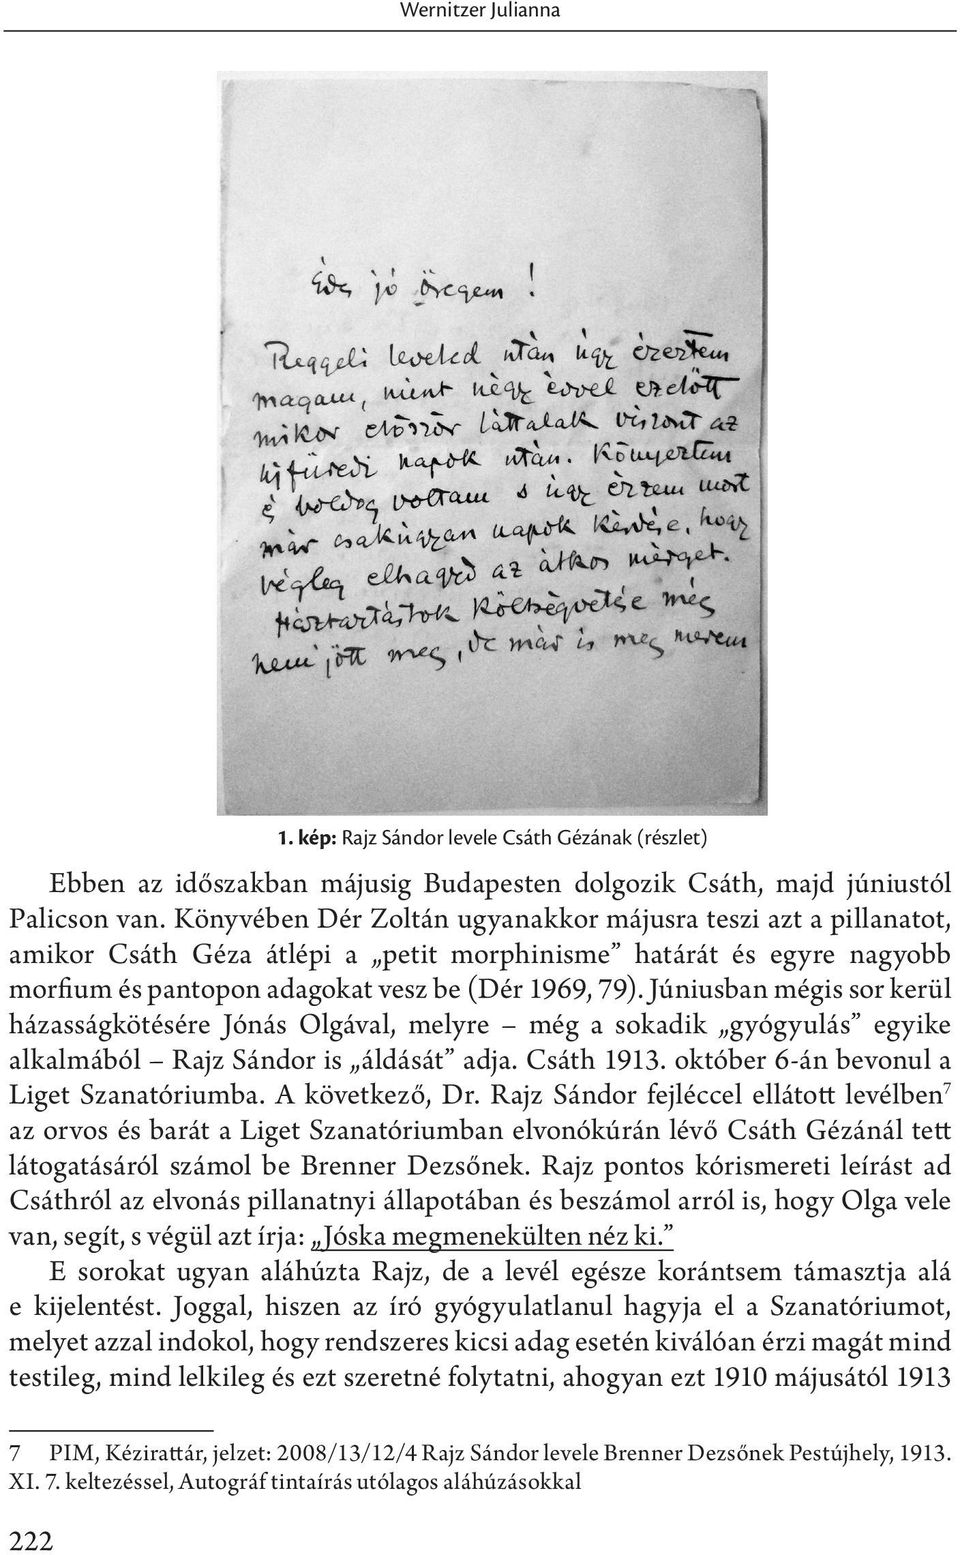 Wernitzer Julianna
Édes jó öregem!
Reggeli leveled után úgy éreztem
magam, mint négy évvel ezelőtt
mikor először láttalak viszont az
ujfüredi napok után. Könyeztem
é boldog voltam s úgy érzem most
már csakúgyan napok kérdése, hogy
végleg elhagyd az átkos mérget.
Háztartástok költségvetése még
nem jött meg, de már is meg merem
1. kép: Rajz Sándor levele Csáth Gézának (részlet)
Ebben az időszakban májusig Budapesten dolgozik Csáth, majd júniustól
Palicson van. Könyvében Dér Zoltán ugyanakkor májusra teszi azt a pillanatot,
amikor Csáth Géza átlépi a „petit morphinisme” határát és egyre nagyobb
morfium és pantopon adagokat vesz be (Dér 1969, 79). Júniusban mégis sor kerül
házasságkötésére Jónás Olgával, melyre – még a sokadik „gyógyulás” egyike
alkalmából – Rajz Sándor is „áldását” adja. Csáth 1913. október 6-án bevonul a
Liget Szanatóriumba. A következő, Dr. Rajz Sándor fejléccel ellátott levélben7
az orvos és barát a Liget Szanatóriumban elvonókúrán lévő Csáth Gézánál tett
látogatásáról számol be Brenner Dezsőnek. Rajz pontos kórismereti leírást ad
Csáthról az elvonás pillanatnyi állapotában és beszámol arról is, hogy Olga vele
van, segít, s végül azt írja: „Jóska megmenekülten néz ki.”
E sorokat ugyan aláhúzta Rajz, de a levél egésze korántsem támasztja alá
e kijelentést. Joggal, hiszen az író gyógyulatlanul hagyja el a Szanatóriumot,
melyet azzal indokol, hogy rendszeres kicsi adag esetén kiválóan érzi magát mind
testileg, mind lelkileg és ezt szeretné folytatni, ahogyan ezt 1910 májusától 1913
7 PIM, Kézirattár, jelzet: 2008/13/12/4 Rajz Sándor levele Brenner Dezsőnek Pestújhely, 1913.
XI. 7. keltezéssel, Autográf tintaírás utólagos aláhúzásokkal
222